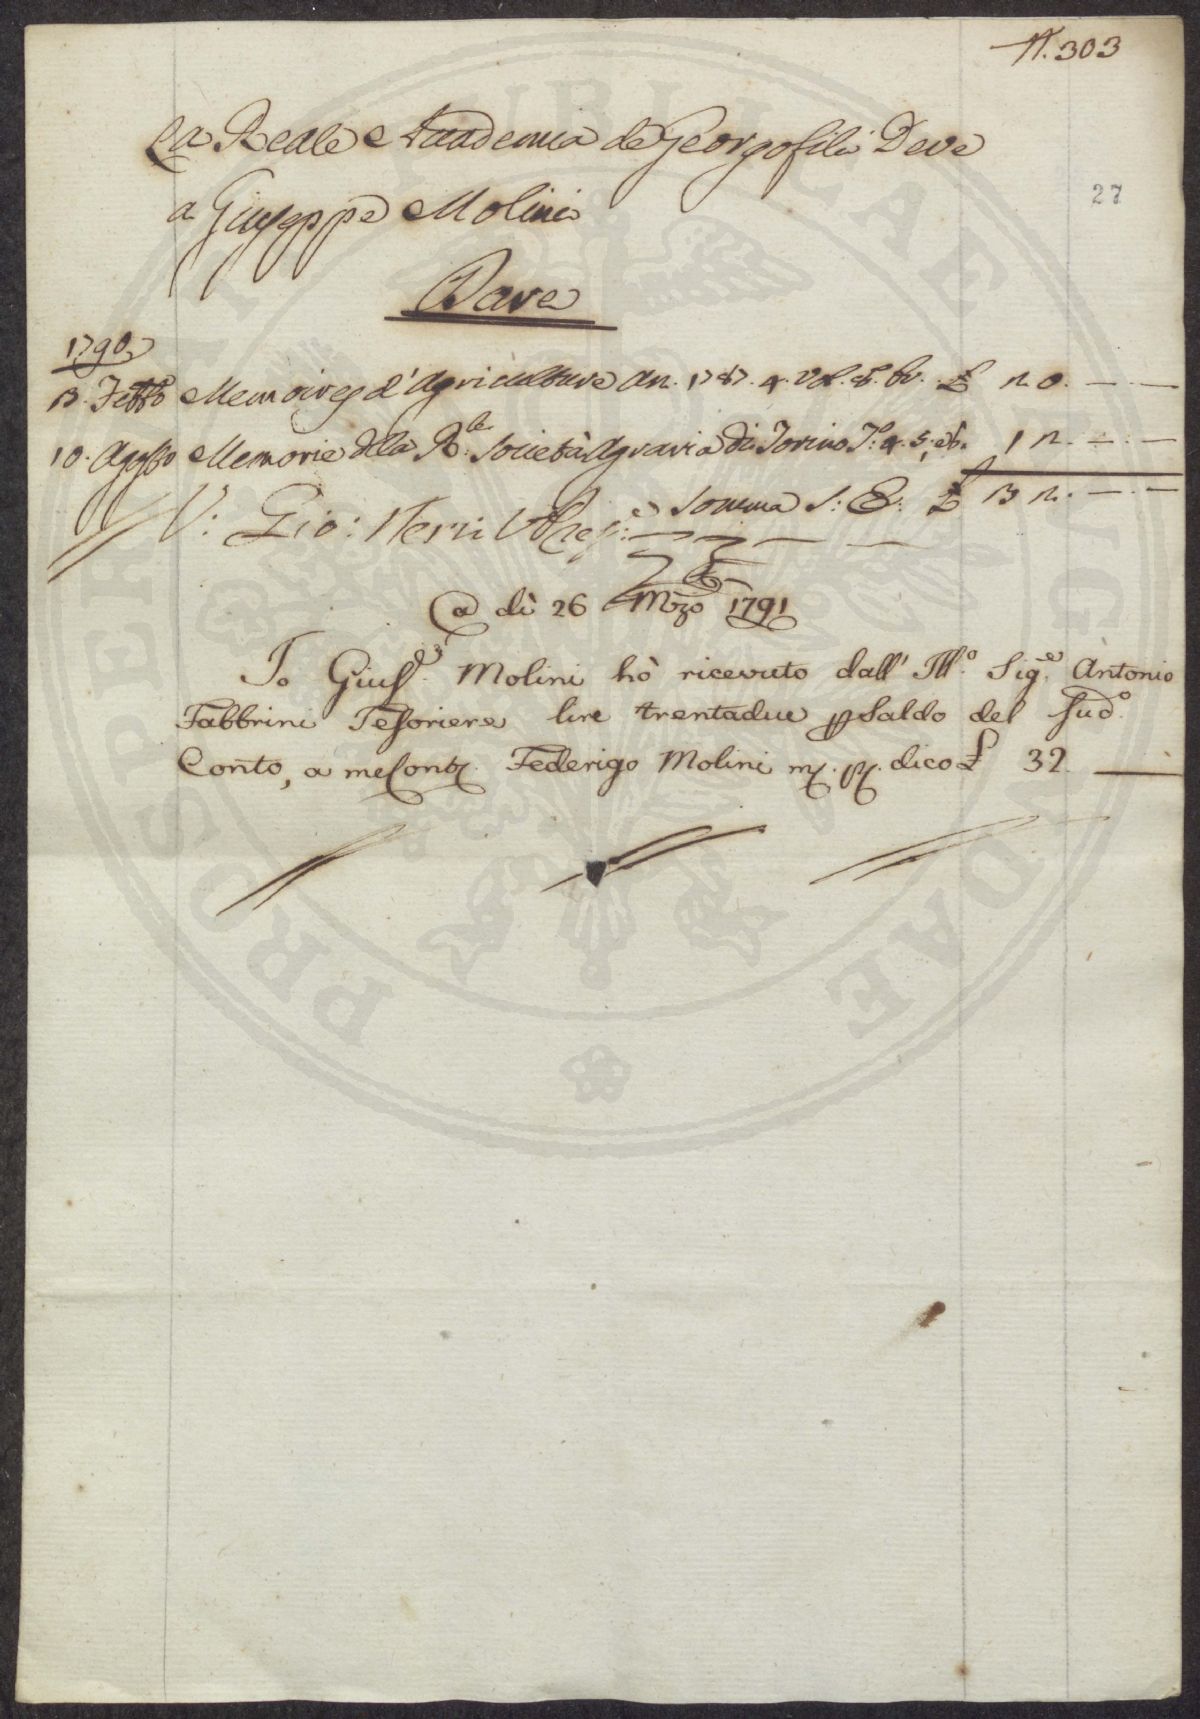 N. 303
27
La Reale Accademia de Georgofili Deve
a Giuseppe Molini
Dare
1790
13. Febb.o Memoires d'Agriculture An. 1787. 4. Vol. 8. br. £ 20. — —
10. Agosto Memorie della R.le Società Agraria di Torino T.o 4. 5. e 6. 12. — —
Somma S: E: £ 32. — —
V: Gio: Neri
A dì 26 Mzo 1791
Io Gius.e Molini hò ricevuto dall' Ill.o Sig.e Antonio
Fabbrini Tesoriere lire trentadue p saldo del sud.o
Conto, a me cont. Federigo Molini m. p. dico £ 32 —
PROSPERITATI PUBLICAE AUGENDAE